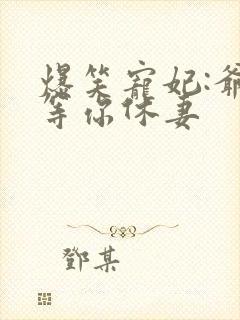 爆笑寵妃:爺
等你休妻
鄧某